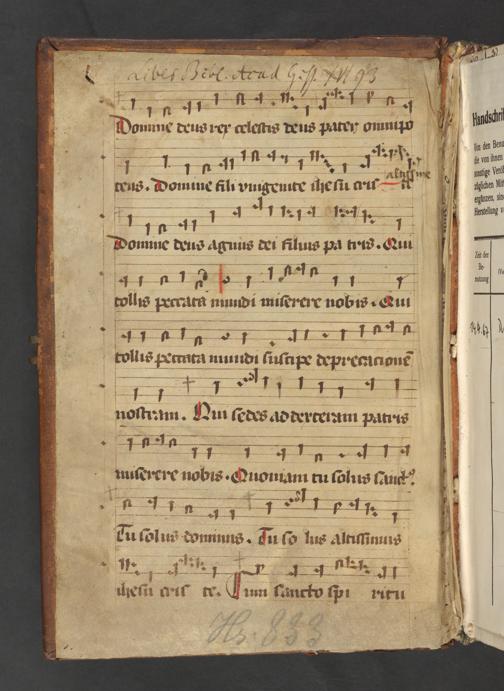 Liber Bibl. Acad Giss
Domine deus rex celestis deus pater omnipo
tens. Domine fili unigenite ihesu cris te
altissime
Domine deus agnus dei filius pa tris. Qui
tollis peccata mundi miserere nobis. Qui
tollis peccata mundi suscipe deprecacionē
nostram. Qui sedes ad dexteram patris
miserere nobis. Quoniam tu solus sanctꝰ.
Tu solus dominus. Tu so lus altissimus
ihesu cris te. Cum sancto spi ritu
Hs. 833
Handschrif
Zeit der
Be-
nutzung